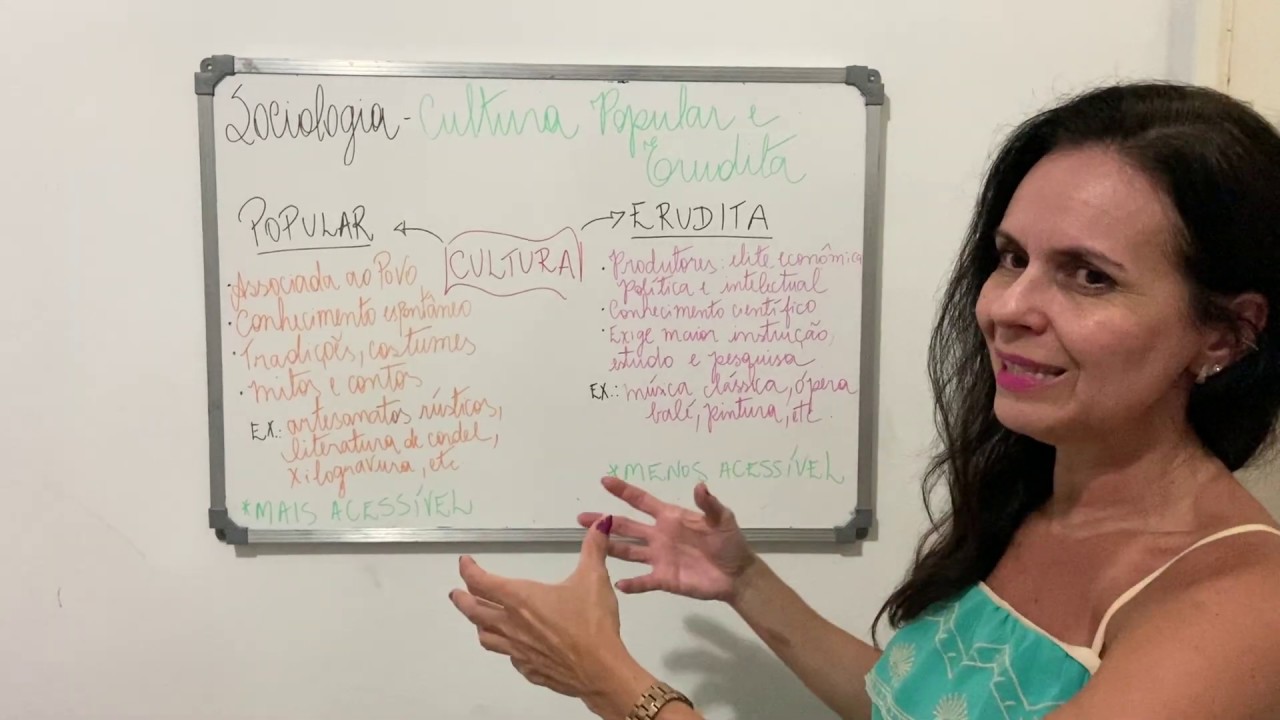 Sociologia - Cultura Popular e
Erudita
POPULAR
CULTURA
ERUDITA
· Associada ao Povo
· Conhecimento espontâneo
· Tradições, costumes
· mitos e contos
EX.: artesanatos rústicos,
literatura de cordel,
xilogravura, etc
*MAIS ACESSÍVEL
· Produtores: elite econômica
política e intelectual
· Conhecimento científico
· Exige maior instruição,
estudo e pesquisa
EX.: música clássica, ópera
balé, pintura, etc.
*MENOS ACESSÍVEL